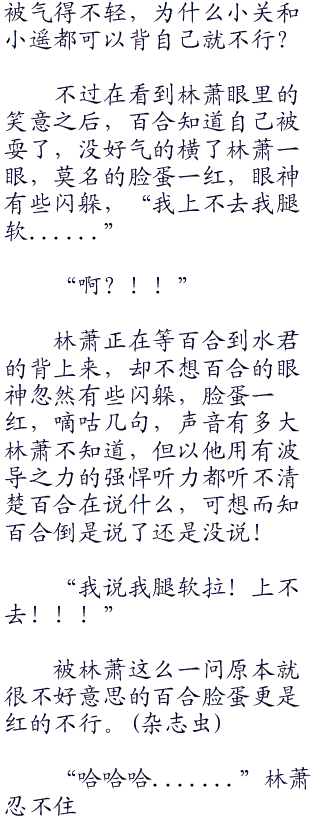 被气得不轻，为什么小关和
小遥都可以背自己就不行？
不过在看到林萧眼里的
笑意之后，百合知道自己被
耍了，没好气的横了林萧一
眼，莫名的脸蛋一红，眼神
有些闪躲，“我上不去我腿
软......”
“啊？！！”
林萧正在等百合到水君
的背上来，却不想百合的眼
神忽然有些闪躲，脸蛋一
红，嘀咕几句，声音有多大
林萧不知道，但以他用有波
导之力的强悍听力都听不清
楚百合在说什么，可想而知
百合倒是说了还是没说！
“我说我腿软拉！上不
去！！！”
被林萧这么一问原本就
很不好意思的百合脸蛋更是
红的不行。(杂志虫)
“哈哈哈.......”林萧
忍不住